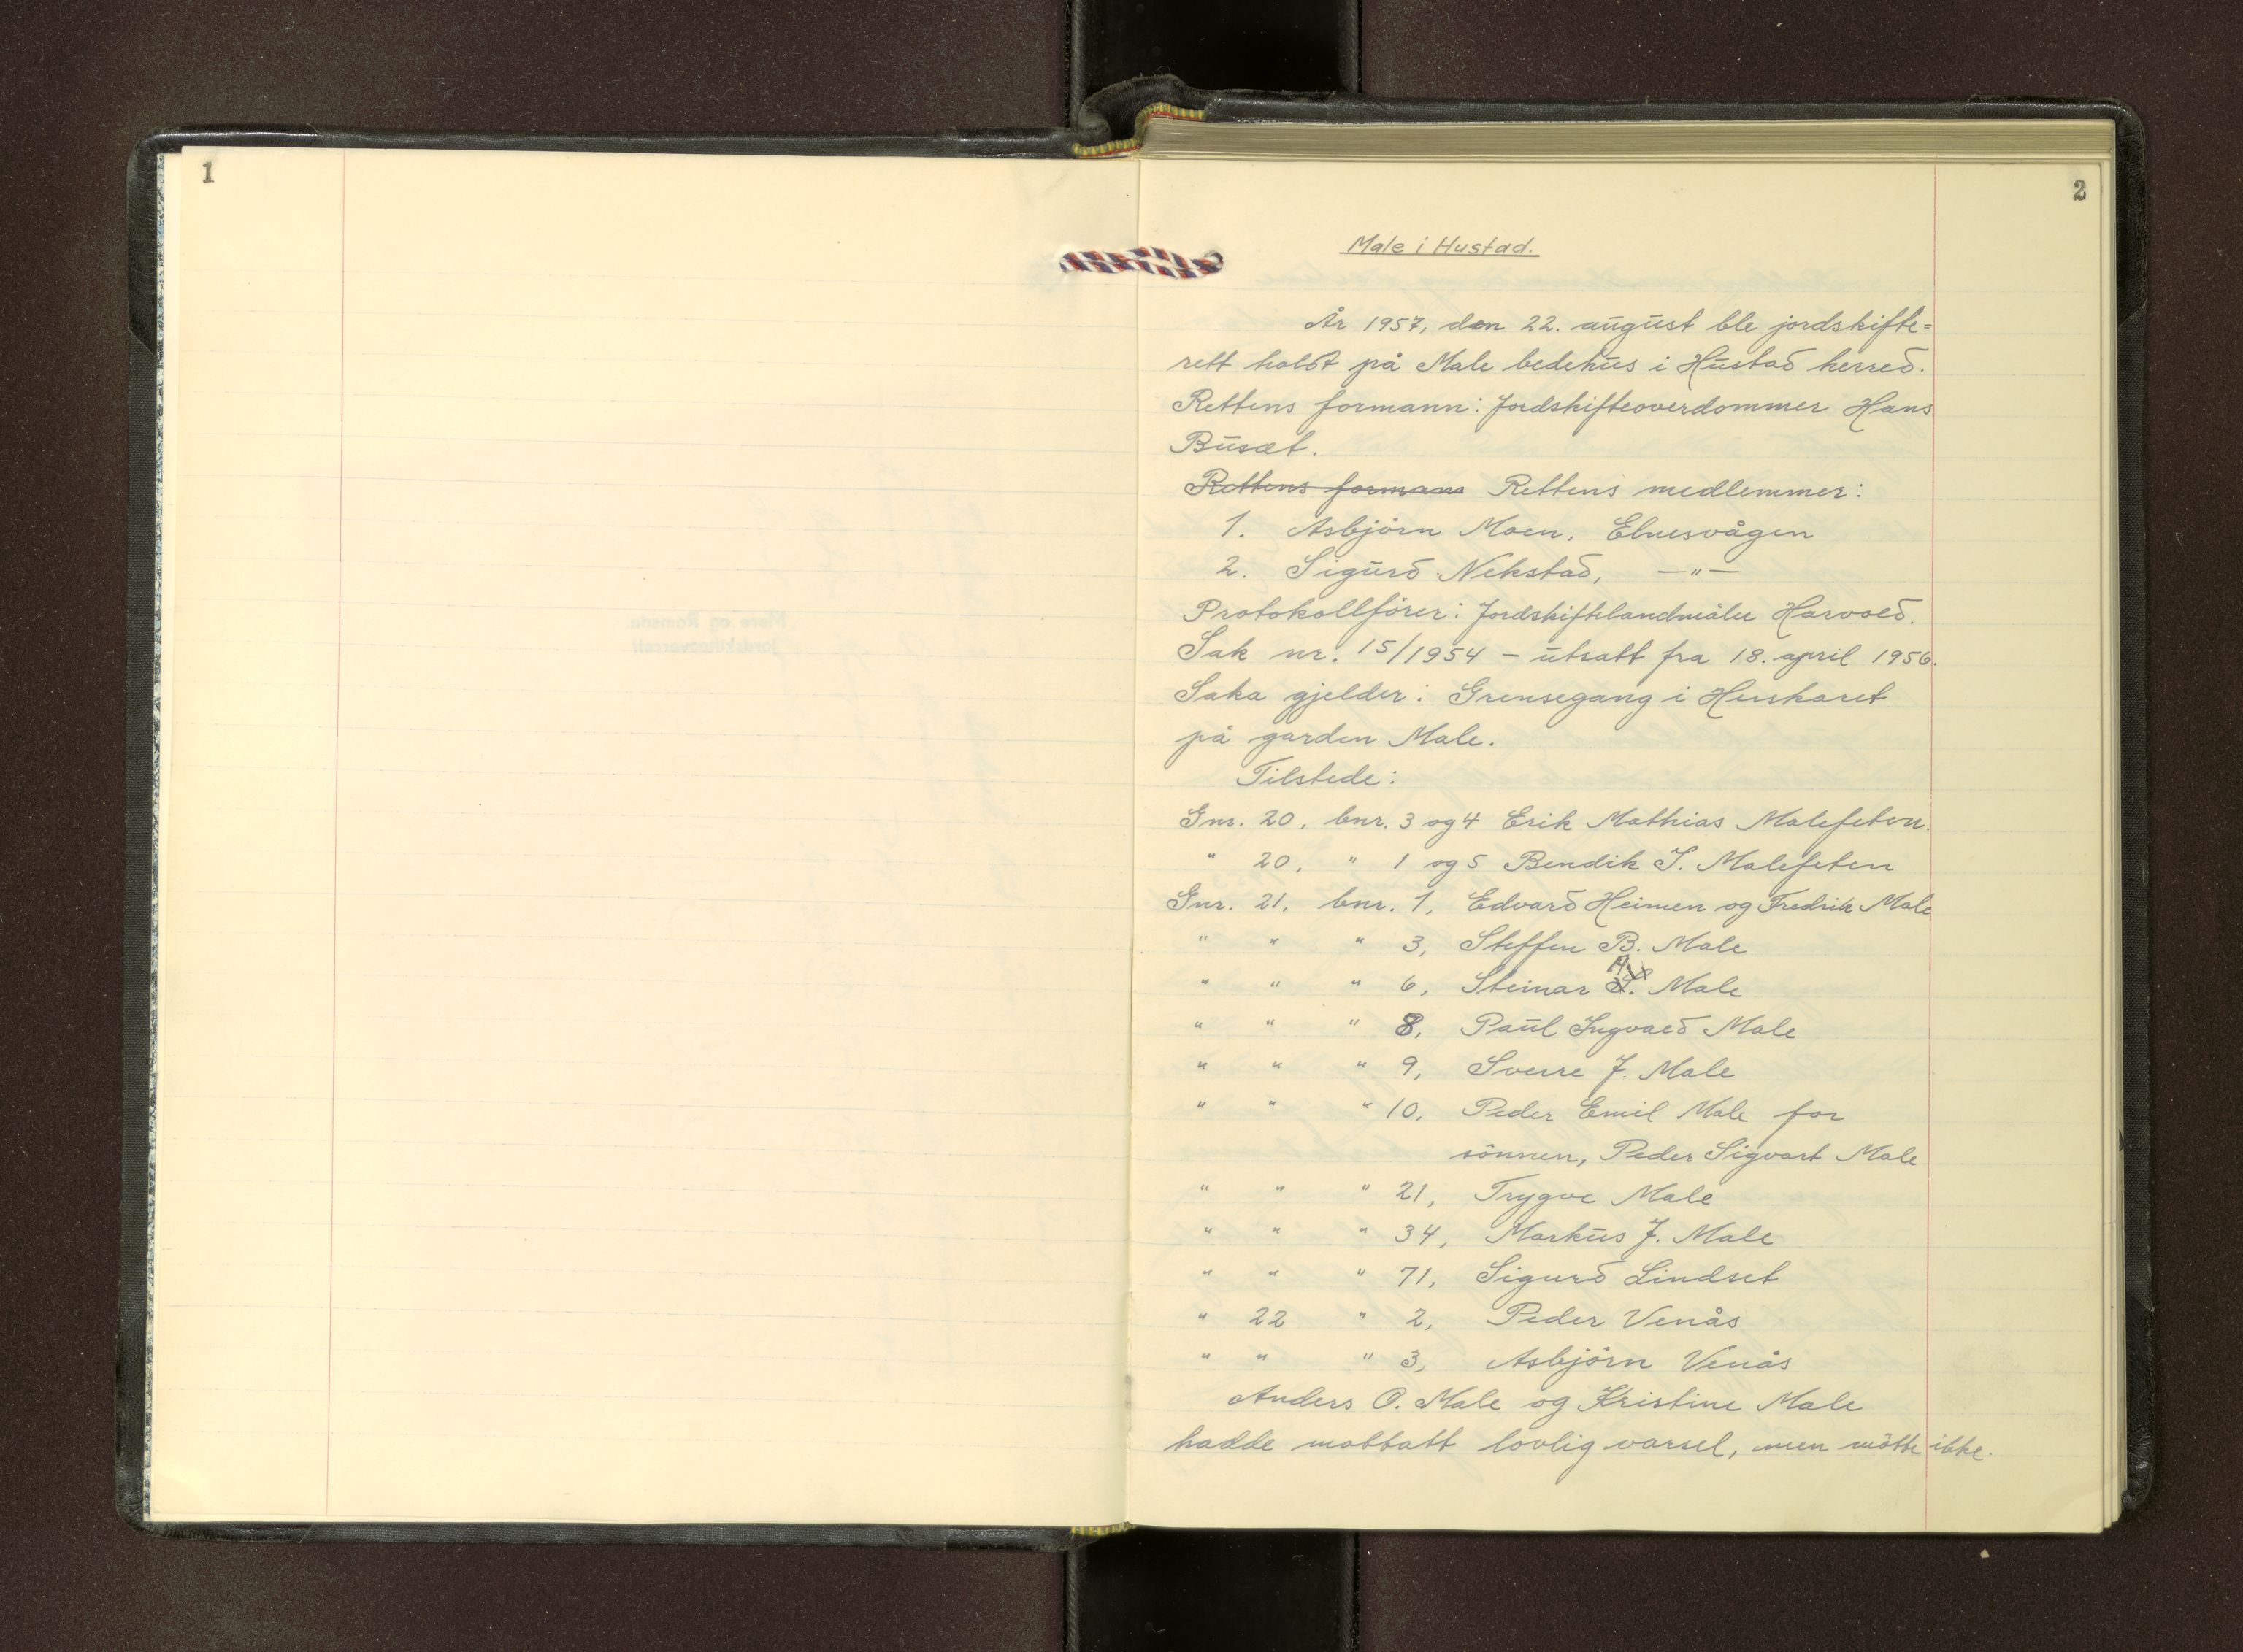 1
2
Male i Hustad.
År 1957, den 22. august ble jordskifte=
rett holdt på Male bedehus i Hustad herred.
Rettens formann: Jordskifteoverdommer Hans
Busæt.
Rettens formann Rettens medlemmer:
1. Asbjörn Moen, Elnesvågen
2. Sigurd Nekstad, —"—
Protokollförer: Jordskiftelandmåler Harvold.
Sak nr. 15/1954 – utsatt fra 18. april 1956.
Saka gjelder: Grensegang i Herskaret
på garden Male.
Tilstede:
Gnr. 20, bnr. 3 og 4 Erik Mathias Malefeten.
" 20, " 1 og 5 Bendik I. Malefeten
Gnr. 21, bnr. 1, Edvard Heimen og Fredrik Male
" " " 3, Steffen B. Male
" " " 6, Steinar A. Male
" " " 8, Paul Ingvald Male
" " " 9, Sverre J. Male
" " " 10, Peder Emil Male for
sönnen, Peder Sigvart Male
" " " 21, Trygve Male
" " " 34, Markus J. Male
" " " 71, Sigurd Lindset
" 22 " 2, Peder Venås
" " " 3, Asbjörn Venås
Anders O. Male og Kristine Male
hadde mottatt lovlig varsel, men mötte ikke.